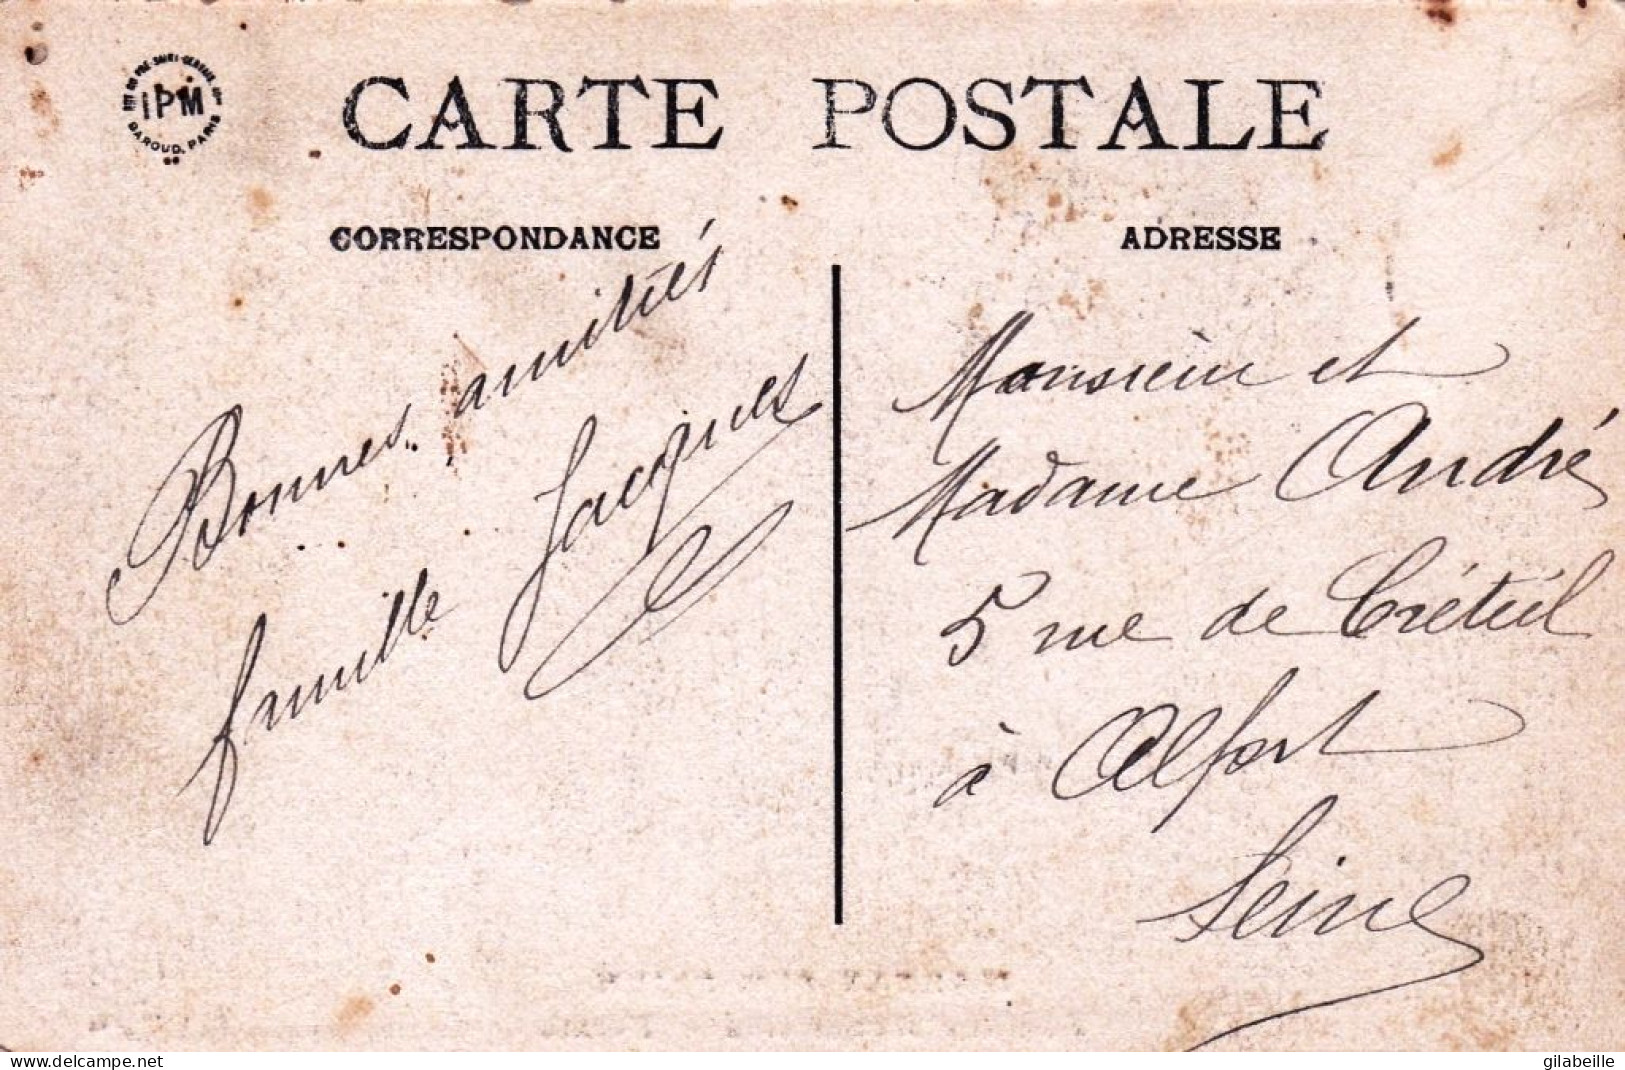 IPM
BAROUD, PARIS
CARTE POSTALE
CORRESPONDANCE
ADRESSE
Bonnes amitiés
famille Jacques
Monsieur et
Madame André
5 rue de Créteil
à Alfort
Seine
www.delcampe.net
gilabeille